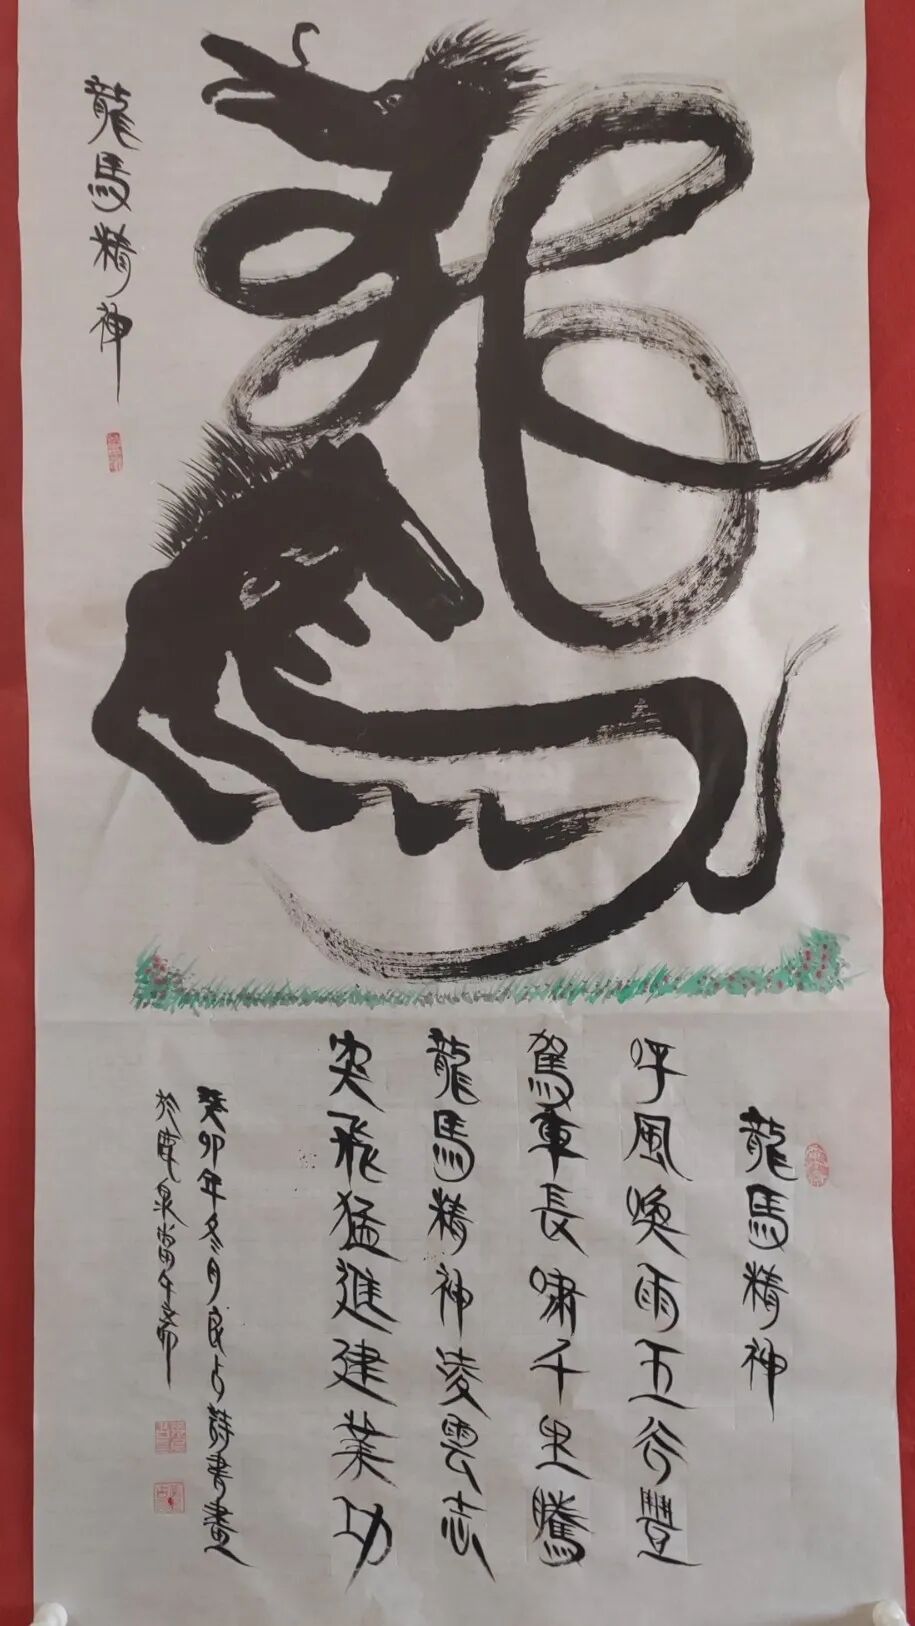 龍馬精神
龍馬精神
呼風喚雨五谷豐
駕車長嘯千里騰
龍馬精神淩雲志
突飛猛進建業功
癸卯年冬月民占詩書畫
於鹿泉